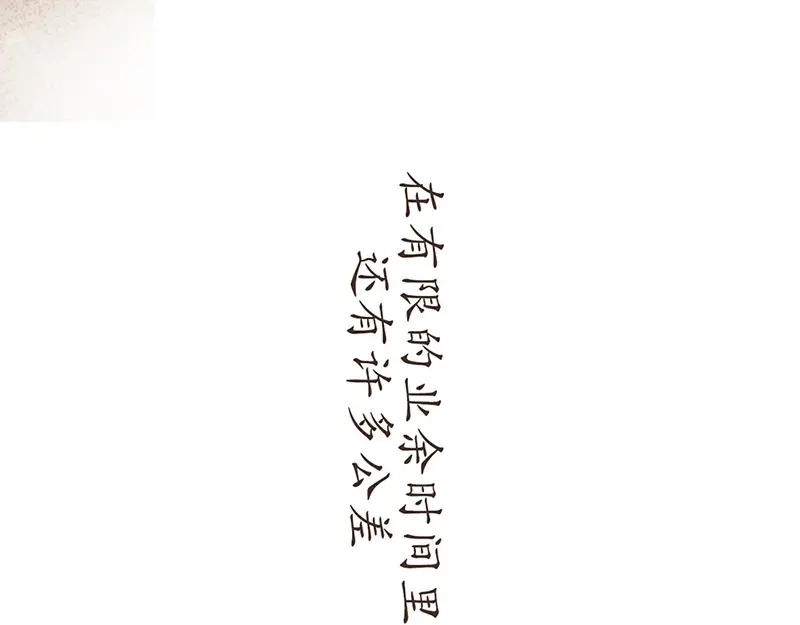 在有限的业余时间里
还有许多公差